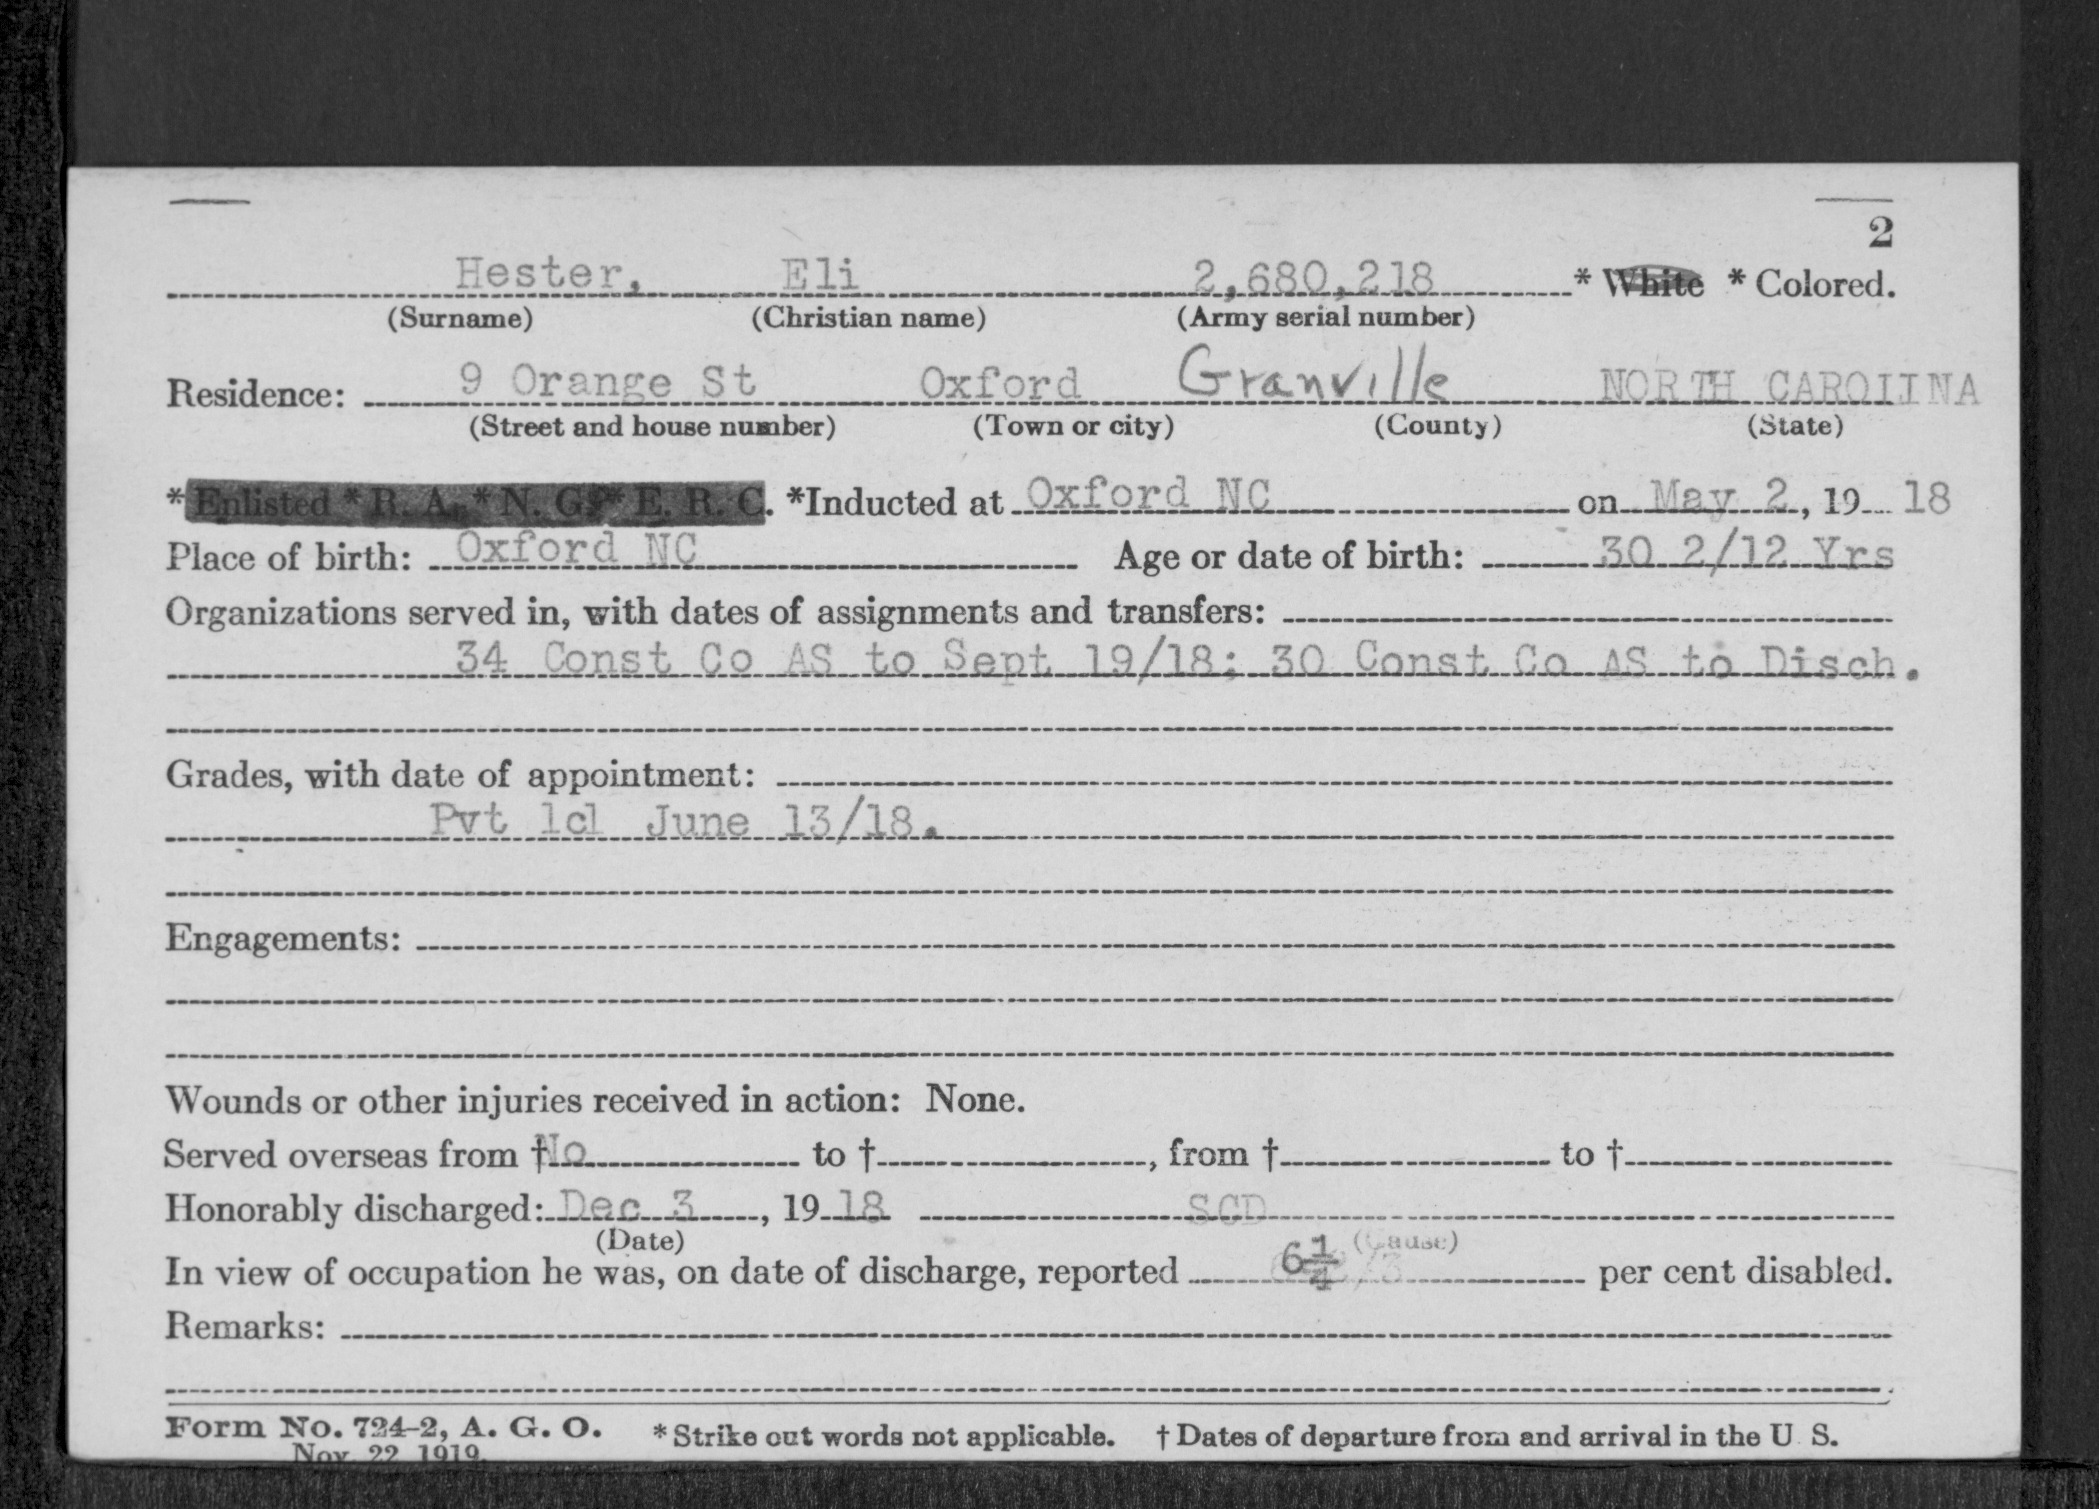 2
Hester, Eli 2,680,218 * White * Colored.
(Surname) (Christian name) (Army serial number)
Residence: 9 Orange St Oxford Granville NORTH CAROLINA
(Street and house number) (Town or city) (County) (State)
* Enlisted * R. A. * N. G. * E. R. C. *Inducted at Oxford NC on May 2, 19 18
Place of birth: Oxford NC Age or date of birth: 30 2/12 Yrs
Organizations served in, with dates of assignments and transfers:
34 Const Co AS to Sept 19/18; 30 Const Co AS to Disch.
Grades, with date of appointment:
Pvt 1cl June 13/18.
Engagements:
Wounds or other injuries received in action: None.
Served overseas from † No to † , from † to †
Honorably discharged: Dec 3, 19 18 SCD
(Date) (Cause)
In view of occupation he was, on date of discharge, reported 6 1/4 per cent disabled.
Remarks:
Form No. 724-2, A. G. O. * Strike out words not applicable. † Dates of departure from and arrival in the U. S.
Nov. 22, 1919.